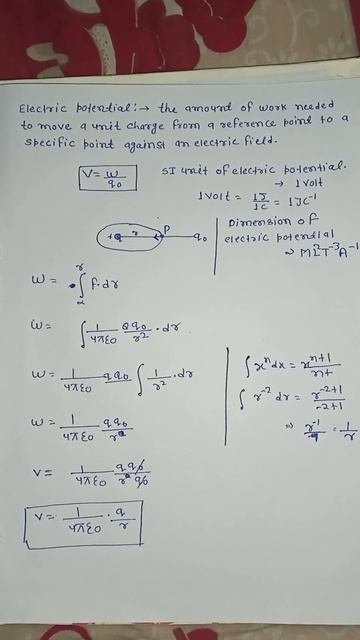 Electric potential :→ the amount of work needed
to move a unit charge from a reference point to a
specific point against an electric field.
V = w/q₀
SI unit of electric potential.
→ 1 volt
1 volt = 1J/1C = 1JC⁻¹
+q r P q₀
Dimension of
electric potential
~ ML²T⁻³A⁻¹
W = ∫ f·dr
W = ∫ 1/4πε0 qq₀/r² · dr
W = 1/4πε0 qq₀ ∫ 1/r² · dr
W = 1/4πε0 qq₀/r
V = 1/4πε0 qq₀/r q₀
V = 1/4πε0 · q/r
∫ xⁿdx = xⁿ⁺¹/n+1
∫ r⁻² dr = r⁻²⁺¹/-2+1
⇒ r⁻¹/-1 = 1/r